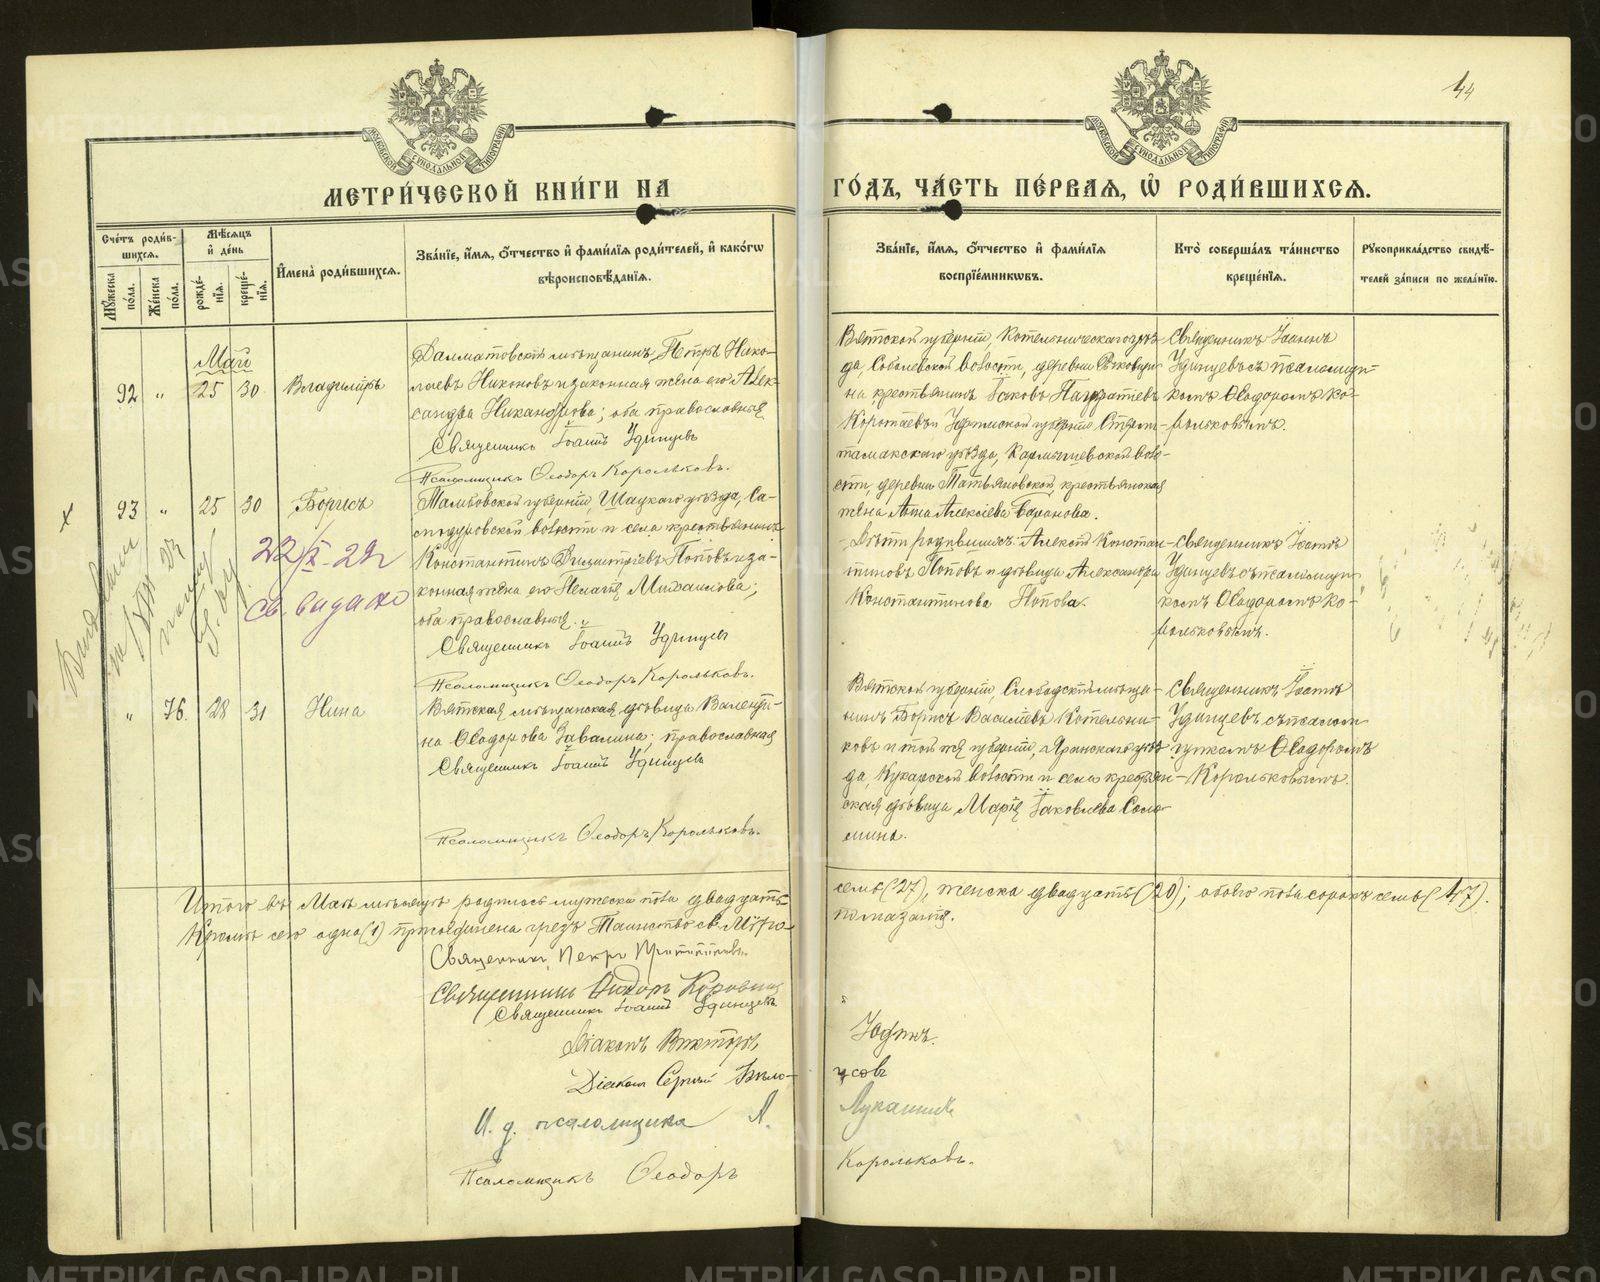 44
МЕТРИ́ЧЕСКОЙ КНИ́ГИ НА ГО́ДЪ, ЧА́СТЬ ПЕ́РВАЯ, Ѡ РОДИ́ВШИХСЯ.
Сче́тъ роди́вшихся.
Мꙋжеска по́ла.
Же́нска по́ла.
Мѣ́сяцъ и де́нь
рожде́нїя.
креще́нїя.
Имена̀ роди́вшихся.
Зва́нїе, и́мя, о́тчество и фами́лїя роди́телей, и како́гѡ
вѣроисповѣ́данїя.
Зва́нїе, и́мя, о́тчество и фами́лїя
воспрїе́мникѡвъ.
Кто̀ соверша́лъ та́инство
креще́нїя.
Рꙋкоприкла́дство свидѣ́-
телей за́писи по жела́нїю.
Май
92 „ 25 30 Владимiръ
Далматовскiй мѣщанинъ Петръ Нико-
лаевъ Никоновъ и законная жена его Алек-
сандра Никандрова; оба православные
Священникъ Iоаннъ Удинцевъ
Псаломщикъ Ѳеодоръ Корольковъ.
Вятской губернiи, Котельническаго уѣз-
да, волости, деревни
на крестьянинъ Iаковъ
Коротаевъ и Уфимской губернiи Стерли-
тамакскаго уѣзда, воло-
сти, деревни Татьяновской, крестьянская
жена Анна Алексѣева Баранова.
Священникъ Iоаннъ
Удинцевъ съ псаломщи-
комъ Ѳеодоромъ Ко-
рольковымъ.
93 „ 25 30 Борисъ
Тамбовской губернiи, Шацкаго уѣзда, Са-
волости и села крестьянинъ
Константинъ Димитрiевъ Поповъ и за-
конная жена его Пелагiя Михаилова;
оба православные.
Священникъ Iоаннъ Удинцевъ
Псаломщикъ Ѳеодоръ Корольковъ.
Дѣти родившихъ: Алексѣй Констан-
тиновъ Поповъ и дѣвица Александра
Константинова Попова.
Священникъ Iоаннъ
Удинцевъ съ псаломщи-
комъ Ѳеодоромъ Ко-
рольковымъ.
22/X-22г
св. выдано
„ 76. 28 31 Нина
Вятская мѣщанская дѣвица Валенти-
на Ѳеодорова Завалина; православная
Священникъ Iоаннъ Удинцевъ
Псаломщикъ Ѳеодоръ Корольковъ.
Вятской губернiи, Слободской мѣща-
нинъ Борисъ Васильевъ Котельни-
ковъ и той же губернiи, Яранскаго уѣз-
да, Кукарской волости и села крестьян-
ская дѣвица Марiя Iаковлева Соло-
мина.
Священникъ Iоаннъ
Удинцевъ съ псалом-
щикомъ Ѳеодоромъ
Корольковымъ.
Итого въ Маѣ мѣсяцѣ родилось мужеска пола двадцать семь (27), женска двадцать (20); обоего пола сорокъ семь (47).
Кромѣ сего одна (1) присоединена чрезъ Таинство св. Мѵро-помазанiя.
Священникъ Петръ
Священникъ Ѳеодоръ
Священникъ Iоаннъ Удинцевъ
Дiаконъ Викторъ Юдинъ.
Дiаконъ Сергiй Бѣло-усовъ
И. д. псаломщика Л. Лукашинъ
Псаломщикъ Ѳеодоръ Корольковъ.
METRIKI.GASO-URAL.RU